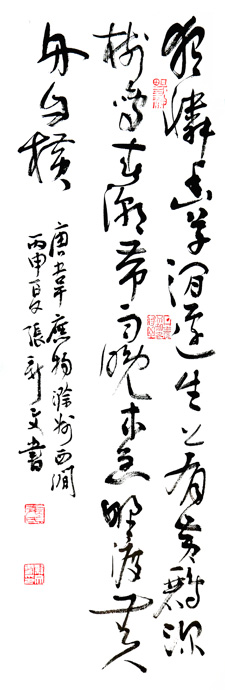 獨憐幽草澗邊生上有黃鸝深
樹鳴春潮帶雨晚來急野渡無人
舟自橫
唐韋應物滁州西澗
丙申夏張新文書